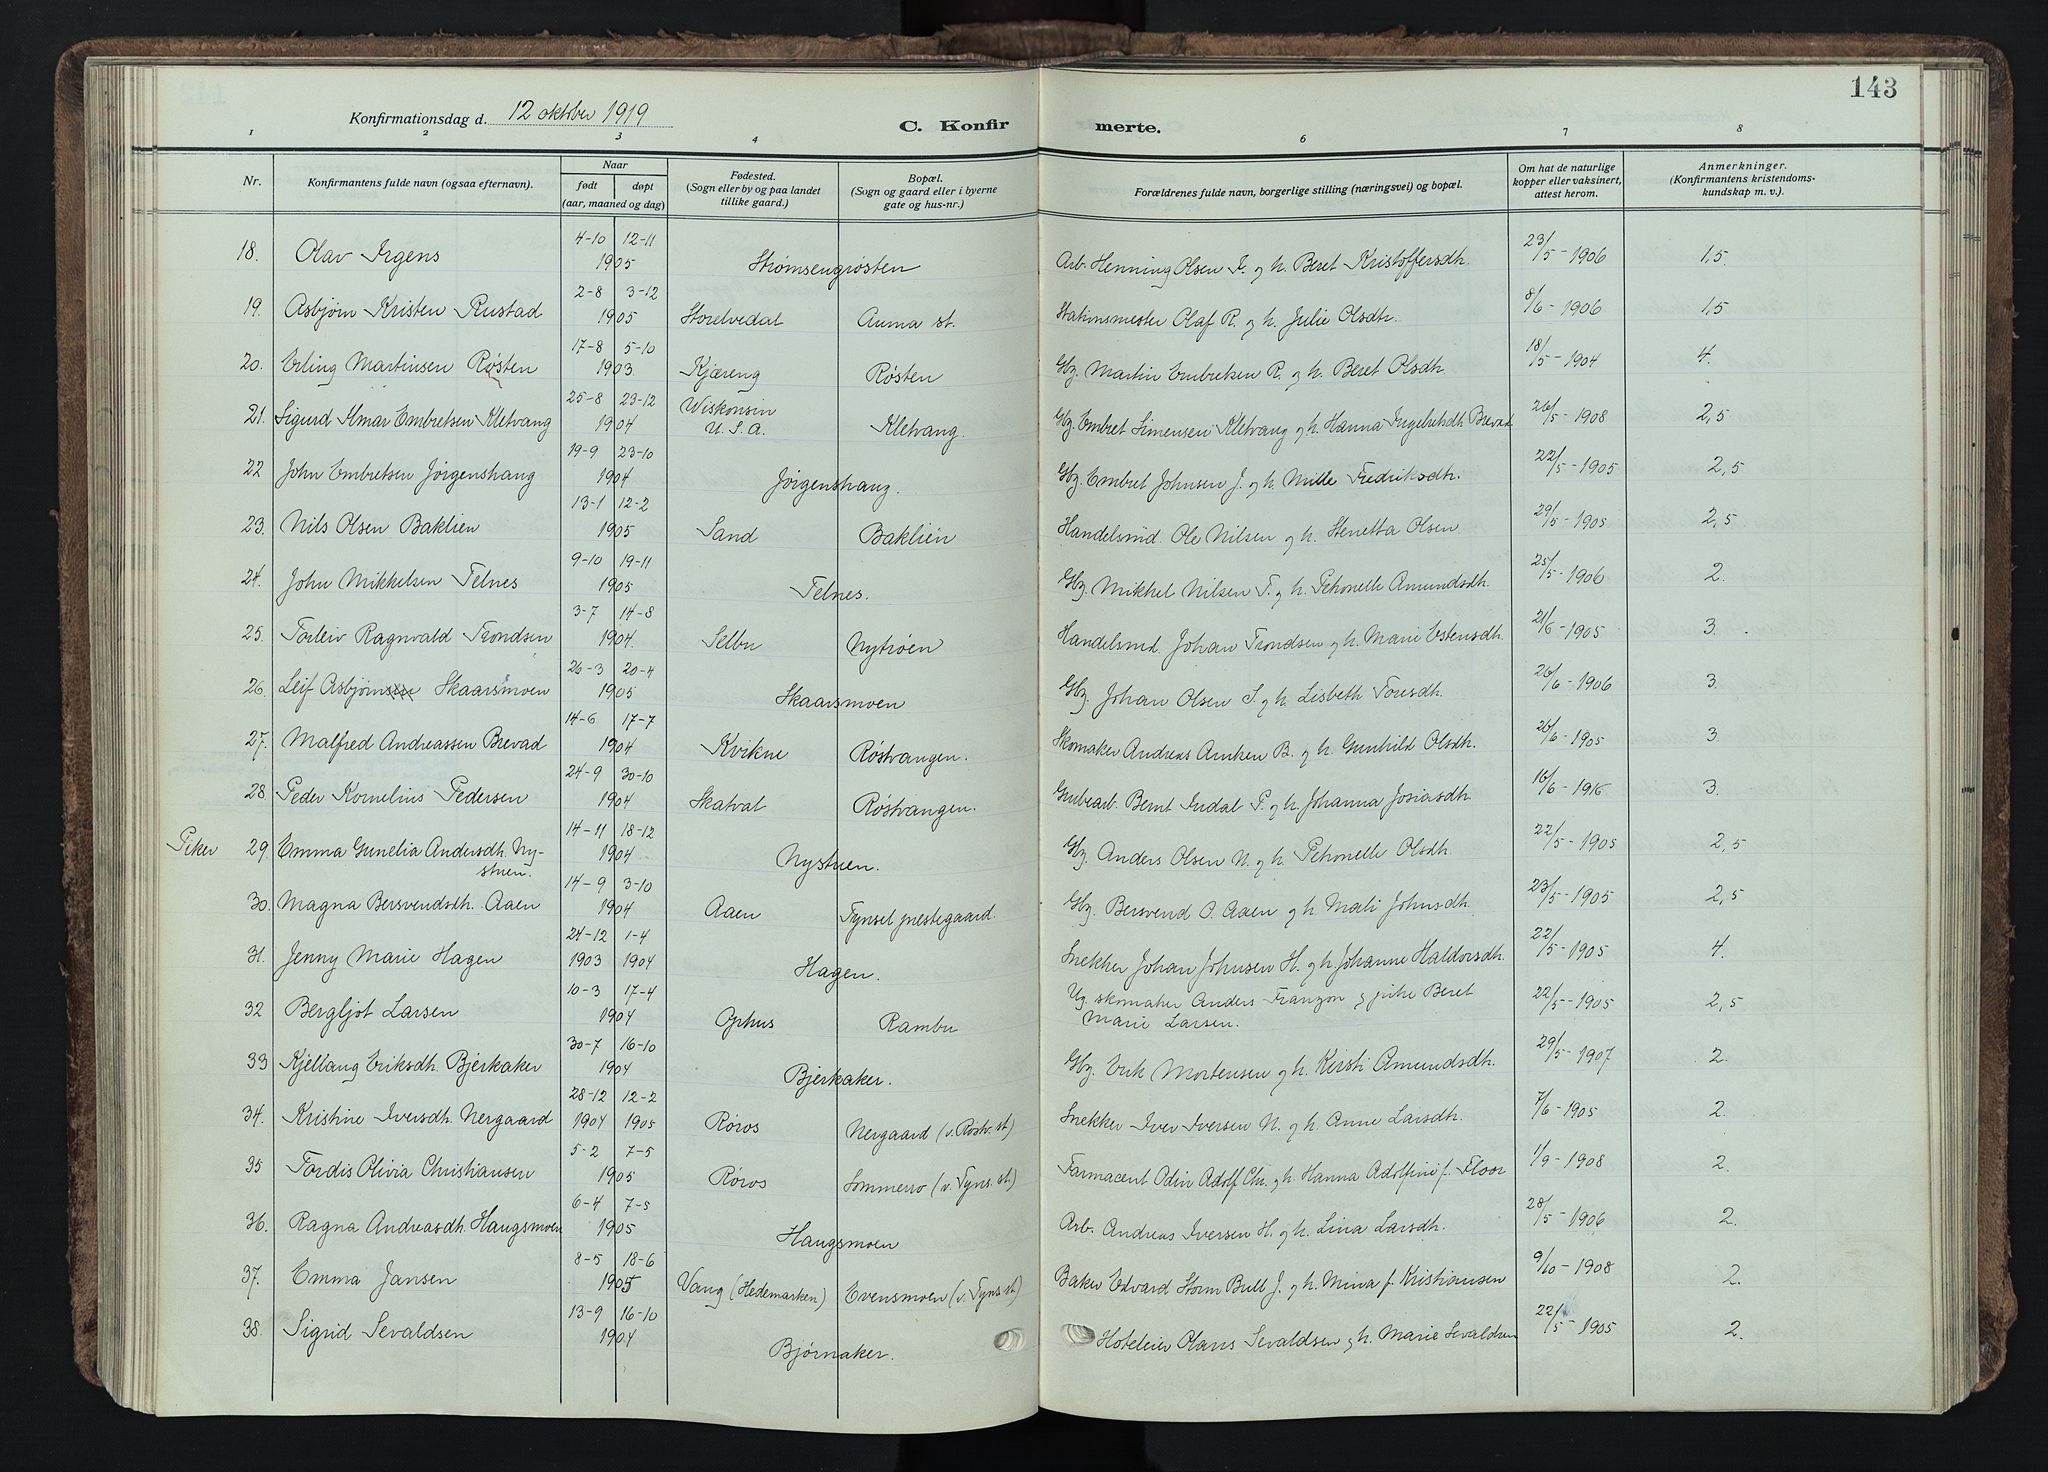 143
Konfirmationsdag d. 12 oktober 1919
C. Konfirmerte.
1 2 3 4 6 7 8
Nr. Konfirmantens fulde navn (ogsaa efternavn). Naar født døpt (aar, maaned og dag) Fødested. (Sogn eller by og paa landet tillike gaard.) Bopæl. (Sogn og gaard eller i byerne gate og hus-nr.) Forældrenes fulde navn, borgerlige stilling (næringsvei) og bopæl. Om hat de naturlige kopper eller vaksinert, attest herom. Anmerkninger. (Konfirmantens kristendomskundskap m. v.)
18. Olav Irgens 4-10 12-11 1905 Strømsengrøsten Arb. Henning Olsen I. og h. Beret Kristoffersdh. 23/5-1906 1,5
19. Asbjørn Kristen Rustad 2-8 3-12 1905 Storelvedal Auma st. Stationsmester Olaf R. og h. Julie Olsdh. 8/6-1906 1,5
20. Erling Martinsen Røsten 17-8 5-10 1903 Kjæreng Røsten Gbr. Martin Embretsen R. og h. Beret Olsdh. 18/5-1904 4.
21. Sigurd Almar Embretsen Kletvang 25-8 23-12 1904 Wiskonsin U.S.A. Kletvang. Gbr. Embret Simensen Kletvang og h. Hanna Ingebretsdh. Brevad 26/5-1908 2,5
22 John Embretsen Jørgenshaug 19-9 23-10 1904 Jørgenshaug. Gbr. Embret Johnsen J. og h. Mille Fredriksdh. 22/5-1905 2,5
23. Nils Olsen Baklien 13-1 12-2 1905 Sand Baklien Handelsmd. Ole Nilsen og h. Stenetta Olsen 29/5-1905 2,5
24. John Mikkelsen Telnes 9-10 19-11 1905 Telnes. Gbr. Mikkel Nilsen T. og h. Petronelle Amundsdh. 25/5-1906 2.
25. Torleiv Ragnvald Trondsen 3-7 14-8 1904. Selbu Nytrøen Handelsmd. Johan Trondsen og h. Marie Estensdh. 21/6-1905 3.
26. Leif Asbjørnsen Skaarsmoen 26-3 20-4 1905 Skaarsmoen Gbr. Johan Olsen S. og h. Lisbeth Toresdh. 26/6-1906 3.
27. Malfred Andreassen Brevad 14-6 17-7 1904 Kvikne Røstvangen. Skomaker Andreas Amksen B. og h. Gunhild Olsdh. 26/6-1905 3
28 Peder Kornelius Pedersen 24-9 30-10 1904 Skatval Røstvangen. Grubearb. Bernt Indal P. og h. Johanna Josiasdh. 16/6-1916 3.
Piker 29. Emma Gunelia Andersdh. Ny-
stuen. 14-11 18-12 1904 Nystuen. Gbr. Anders Olsen N. og h. Petronelle Olsdh. 22/5-1905 2,5
30. Magna Bersvendsdh. Aaen 14-9 3-10 1904 Aaen Tynset prestegaard. Gbr. Bersvend O. Aaen og h. Mali Johnsdh. 23/5-1905 2,5
31. Jenny Marie Hagen 24-12 1903 1-4 1904 Hagen. Snekker Johan Johnsen H. og h. Johanne Haldorsdh. 22/5-1905 4.
32 Bergljot Larsen 10-3 17-4 1904 Ophus Rambu Ug. skomaker Anders Franzon og pike Beret
Marie Larsen. 22/5-1905 2,5
33 Kjellaug Eriksdh. Bjerkaker 30-7 16-10 1904 Bjerkaker. Gbr. Erik Mortensen og h. Kirsti Amundsdh. 29/5-1907 2.
34. Kristine Iversdh. Nergaard 28-12 1904 12-2 1905 Røros Nergaard (v. Røstv. st) Snekker Iver Iversen N. og h. Anne Larsdh. 7/6-1905 2.
35 Tordis Olivia Christiansen 5-2 7-5 1905 Røros Sommerro (v. Tyns. st) Farmacent Odin Adolf Chr. og h. Hanna Adolfine f. Floor 1/9-1908 2.
36. Ragna Andreasdh. Haugsmoen 6-4 7-5 1905 Haugsmoen Arb. Andreas Iversen H. og h. Lina Larsdh. 28/5-1906 2.
37. Emma Jansen 8-5 18-6 1905 Vang (Hedemarken) Evensmoen (v. Tyns. st) Baker Edvard Storm Bull J. og h. Mina f. Kristiansen 9/10-1908 2.
38. Sigrid Sevaldsen 13-9 16-10 1904 Bjørnaker. Hoteleier Olaus Sevaldsen og h. Marie Sevaldsen 22/5-1905 2.